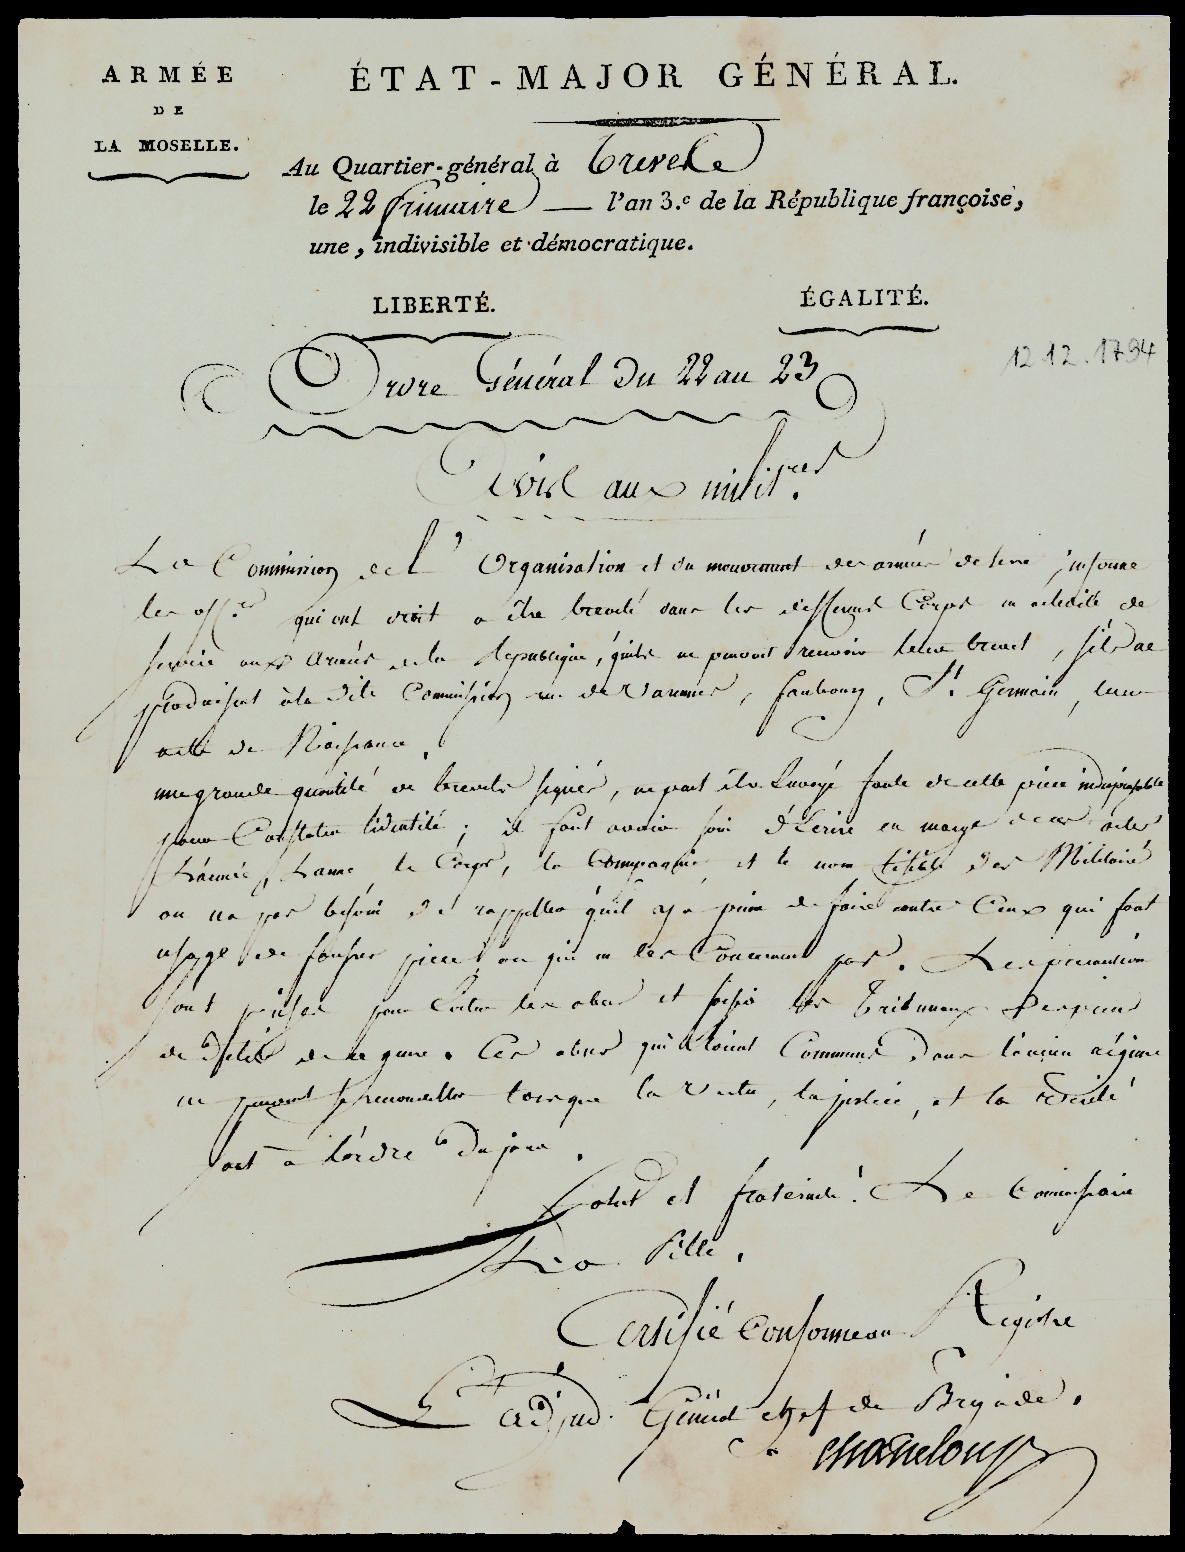 ARMÉE
DE
LA MOSELLE.
ÉTAT-MAJOR GÉNÉRAL.
Au Quartier-général à Treveles
le 22 frimaire — l'an 3.e de la République françoise,
une, indivisible et démocratique.
LIBERTÉ. ÉGALITÉ.
12.12.1794
Ordre Général du 22 au 23
Avis aux milit.res
La Commission de l'Organisation et du mouvement des armées de terre, informe
les off.ers qui ont droit a être breveté dans les differens Corps en activité de
service aux Armées de la Republique, qu'ils ne peuvent recevoir leur brevet, s'ils ne
produisent à la dite Commission rue de Varennes, faubourg, St. Germain, leur
acte de Naissance.
une grande quantité de brevets signés, ne peut être Envoyé faute de cette pièce indispensable
pour Constater l'identité; il faut avoir soin d'Ecrire en marge de ces actes
L'armée, L'arme le Corps, la Compagnie et le nom lisible des Militaires
on na pas besoin de rappeller qu'il y a peine de faire contre Ceux qui font
usage de fausses pieces ou qui ne les Concernent pas. Les précautions
sont prises pour Eviter les abus et les Tribunaux
de ce genre. Ces abus qui étoient Communs dans l'ancien régime
ne peuvent se renouveller lorsque la Vertu, la justice, et la
sont à l'ordre du jour.
Salut et fraternité. Le Commissaire
Pille.
Certifié Conforme au Registre
L'adjud. Général chef de Brigade.
Chasseloup